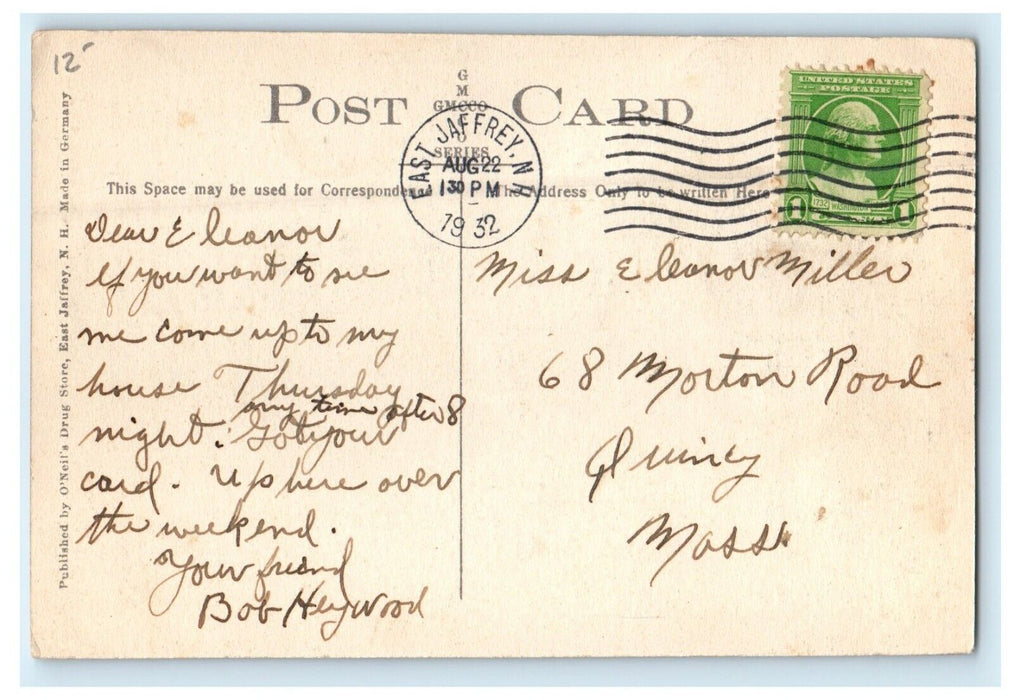 12
POST CARD
G
M
GMCCO
SERIES
EAST JAFFREY, N.H.
AUG 22
1 30 PM
1932
UNITED STATES
POSTAGE
1732 WASHINGTON
1 1
This Space may be used for Correspondence
The Address Only to be written Here
Published by O'Neil's Drug Store, East Jaffrey, N. H. Made in Germany
Dear Eleanor
If you want to see
me come up to my
house Thursday
any time after 8
night. Got your
card. Up here over
the weekend.
Your friend
Bob Heywood
Miss Eleanor Miller
68 Morton Road
Quincy
Mass.